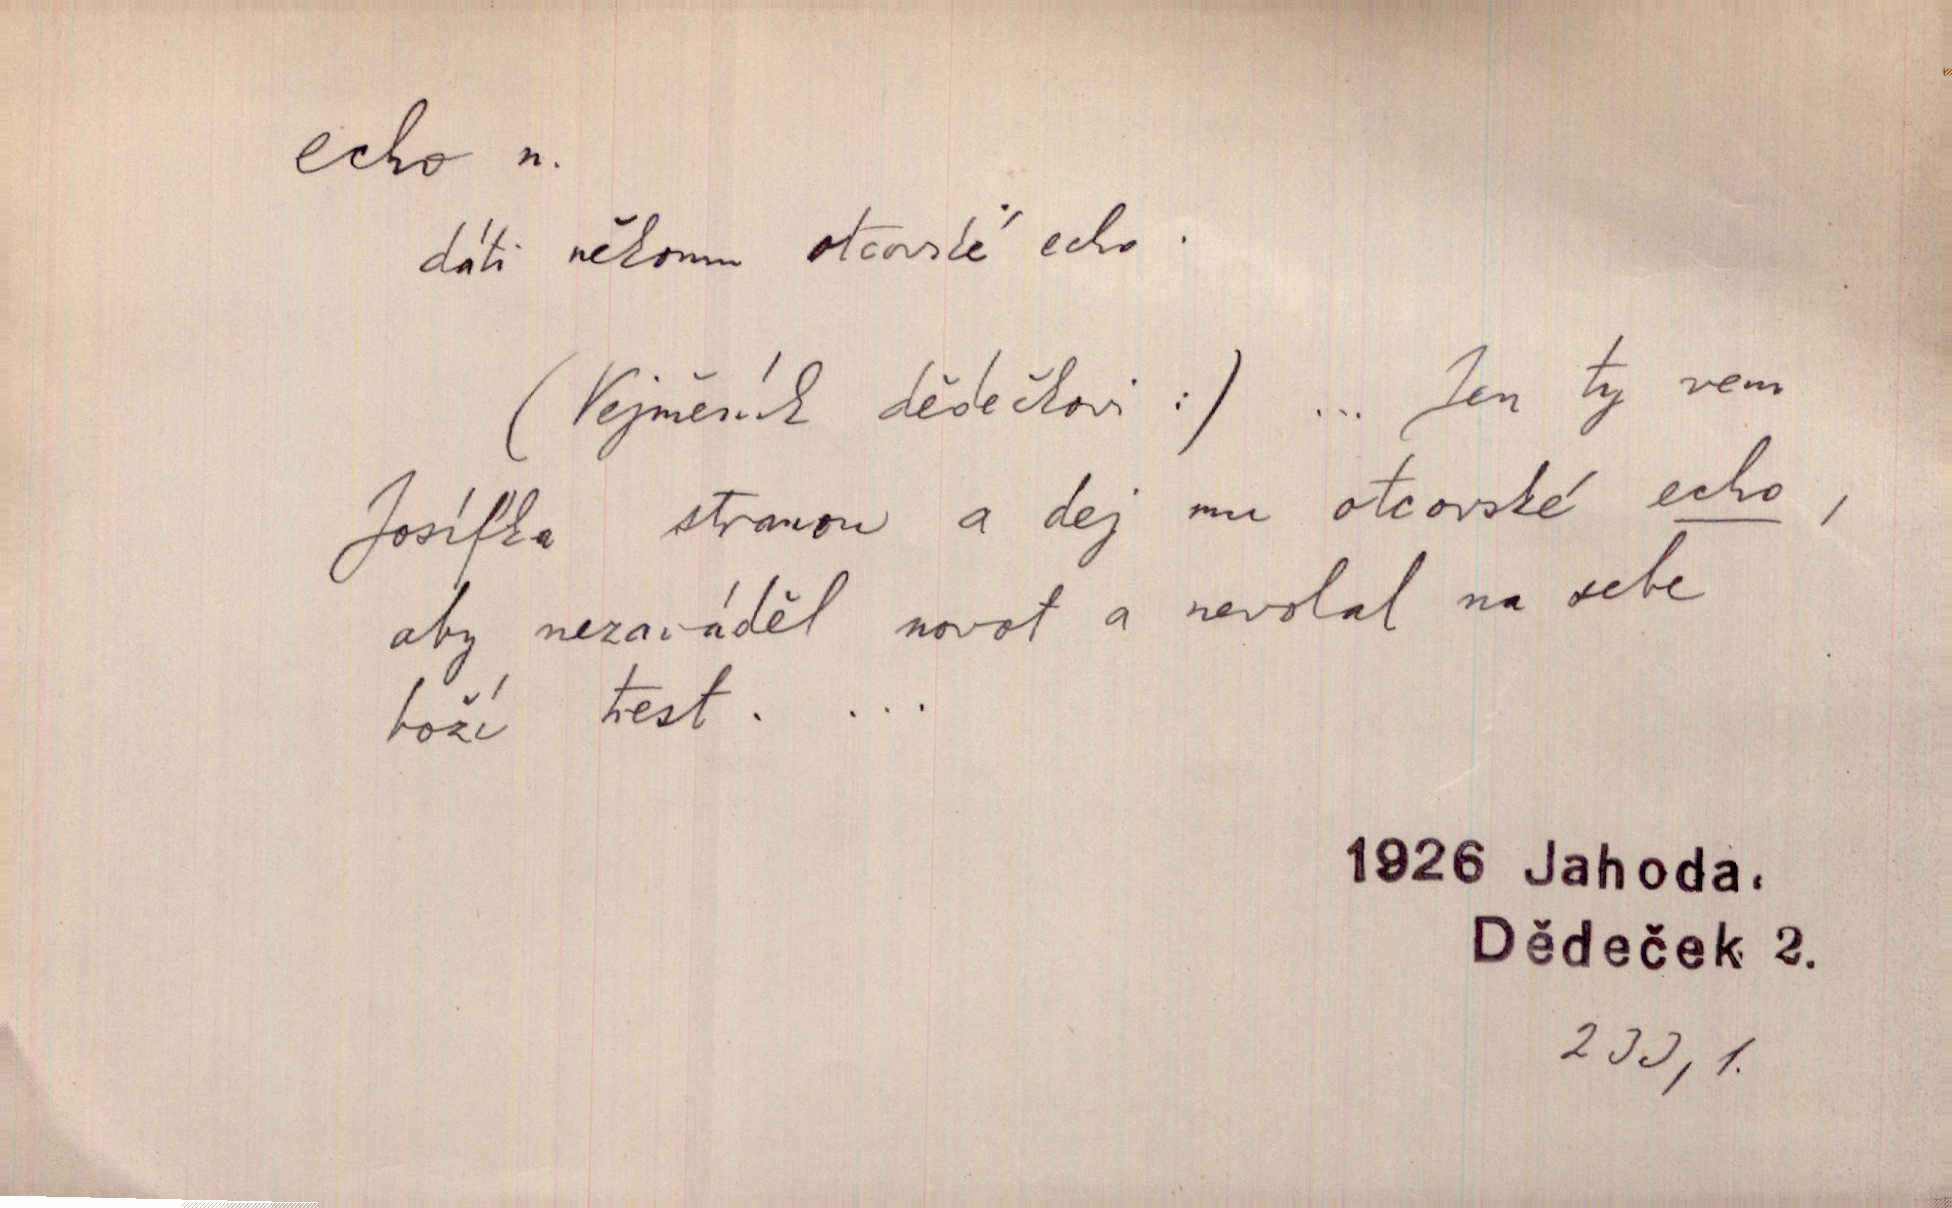 echo n.
dáti někomu otcovské echo.
(Vejměník dědečkovi:) ... Jen ty vem
Josífka stranou a dej mu otcovské echo,
aby nezaváděl novot a nevolal na sebe
boží trest. ...
1926 Jahoda.
Dědeček 2.
233, 1.